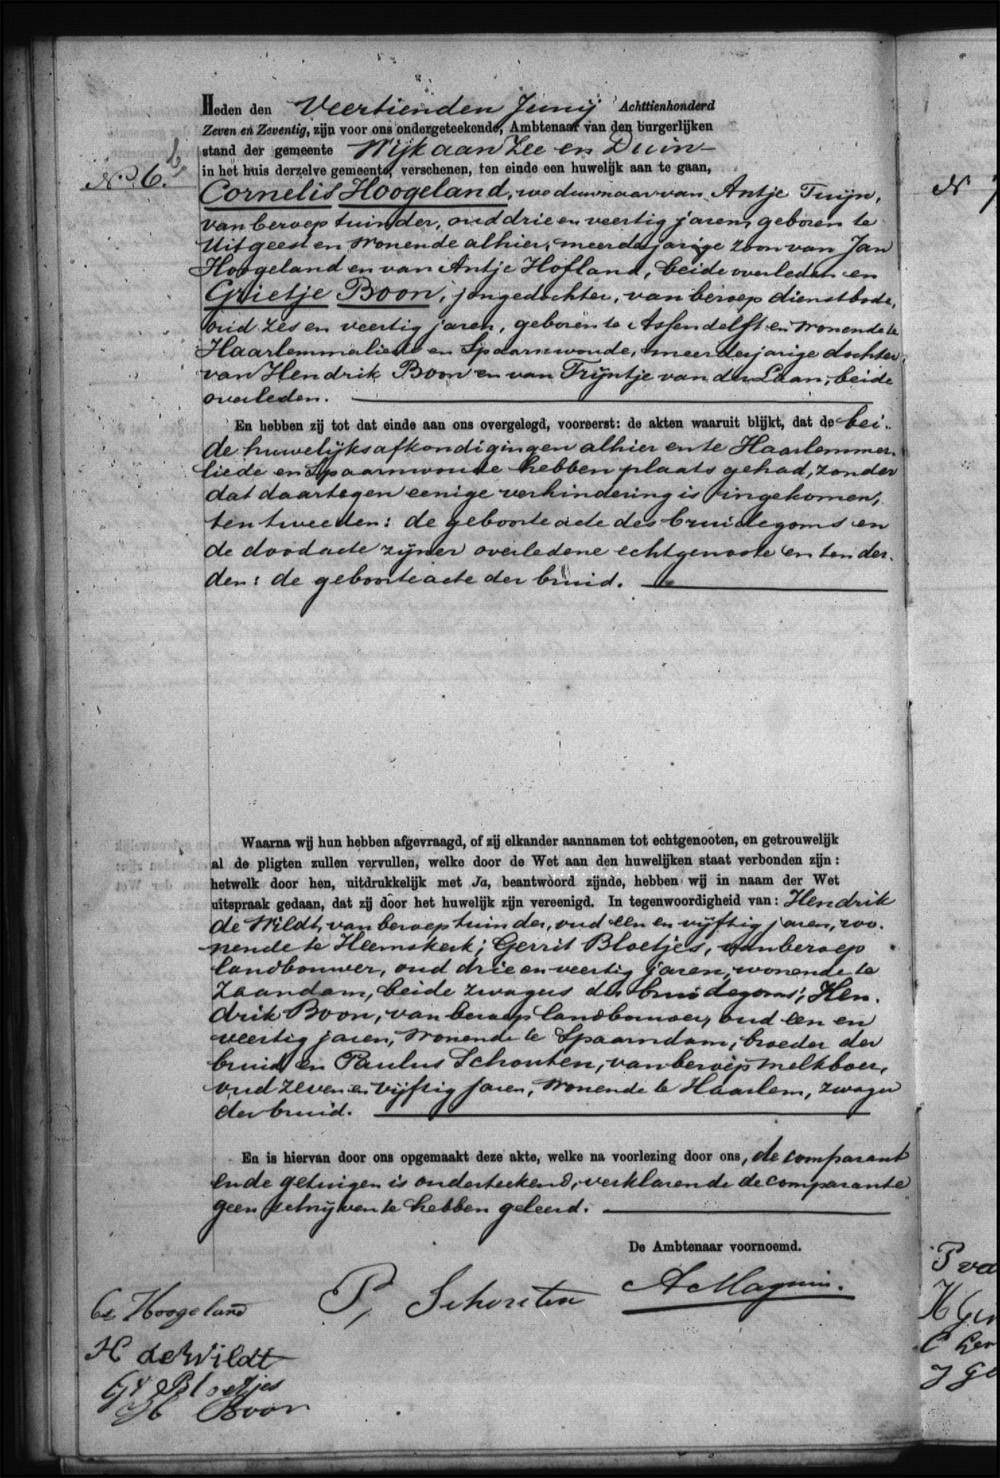 Heden den Veertienden Junij Achttienhonderd
Zeven en Zeventig, zijn voor ons ondergeteekende, Ambtenaar van den burgerlijken
stand der gemeente Wijk aan Zee en Duin
in het huis derzelve gemeente, verschenen, ten einde een huwelijk aan te gaan,
No. 6.
Cornelis Hoogeland, weduwnaar van Antje Tuijn,
van beroep tuinder, oud drie en veertig jaren, geboren te
Uitgeest en wonende alhier, meerderjarige zoon van Jan
Hoogeland en van Antje Hofland, beide overleden en
Grietje Boon, jongedochter, van beroep dienstbode,
oud zes en veertig jaren, geboren te Assendelft en wonende te
Haarlemmaliede en Spaarnwoude, meerderjarige dochter
van Hendrik Boon en van Trijntje van der Laan, beide
overleden.
En hebben zij tot dat einde aan ons overgelegd, vooreerst: de akten waaruit blijkt, dat de bei-
de huwelijksafkondigingen alhier en te Haarlemmer-
liede en Spaarnwoude hebben plaats gehad, zonder
dat daartegen eenige verhindering is ingekomen,
ten tweeden: de geboorteacte des bruidegoms en
de doodacte zijner overledene echtgenoote en ten der-
den: de geboorteacte der bruid.
Waarna wij hun hebben afgevraagd, of zij elkander aannamen tot echtgenooten, en getrouwelijk
al de pligten zullen vervullen, welke door de Wet aan den huwelijken staat verbonden zijn:
hetwelk door hen, uitdrukkelijk met Ja, beantwoord zijnde, hebben wij in naam der Wet
uitspraak gedaan, dat zij door het huwelijk zijn vereenigd. In tegenwoordigheid van: Hendrik
de Wildt, van beroep tuinder, oud een en vijftig jaren, wo-
nende te Heemskerk; Gerrit Bloetjes, van beroep
landbouwer, oud drie en veertig jaren, wonende te
Zaandam, beide zwagers des bruidegoms; Hen-
drik Boon, van beroep landbouwer, oud een en
veertig jaren, wonende te Spaarndam, broeder der
bruid en Paulus Schouten, van beroep melkboer,
oud zeven en vijftig jaren, wonende te Haarlem, zwager
der bruid.
En is hiervan door ons opgemaakt deze akte, welke na voorlezing door ons, de comparant
en de getuigen is onderteekend, verklarende de comparante
geen schrijven te hebben geleerd.
De Ambtenaar voornoemd.
Cs Hoogeland
P, Schouten
A Magnin.
H de Wildt
Gt Bloetjes
H Boon